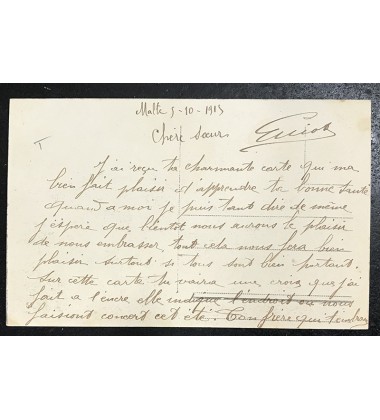 Malte 5-10-1915
Chère Sœur
J'ai reçu ta charmante carte qui ma
bien fait plaisir d'apprendre ta bonne santé
quand a moi je puis tant dire de même
j'espère que bientot nous aurons le plaisir
de nous embrasser tout cela nous fera bien
plaisir surtout si tous sont bien portant.
Sur cette carte tu vaira une croix que j'ai
fait a l'encre elle indique l'endroit ou nous
faisions concert cet été. Ton frère qui t'embrasse